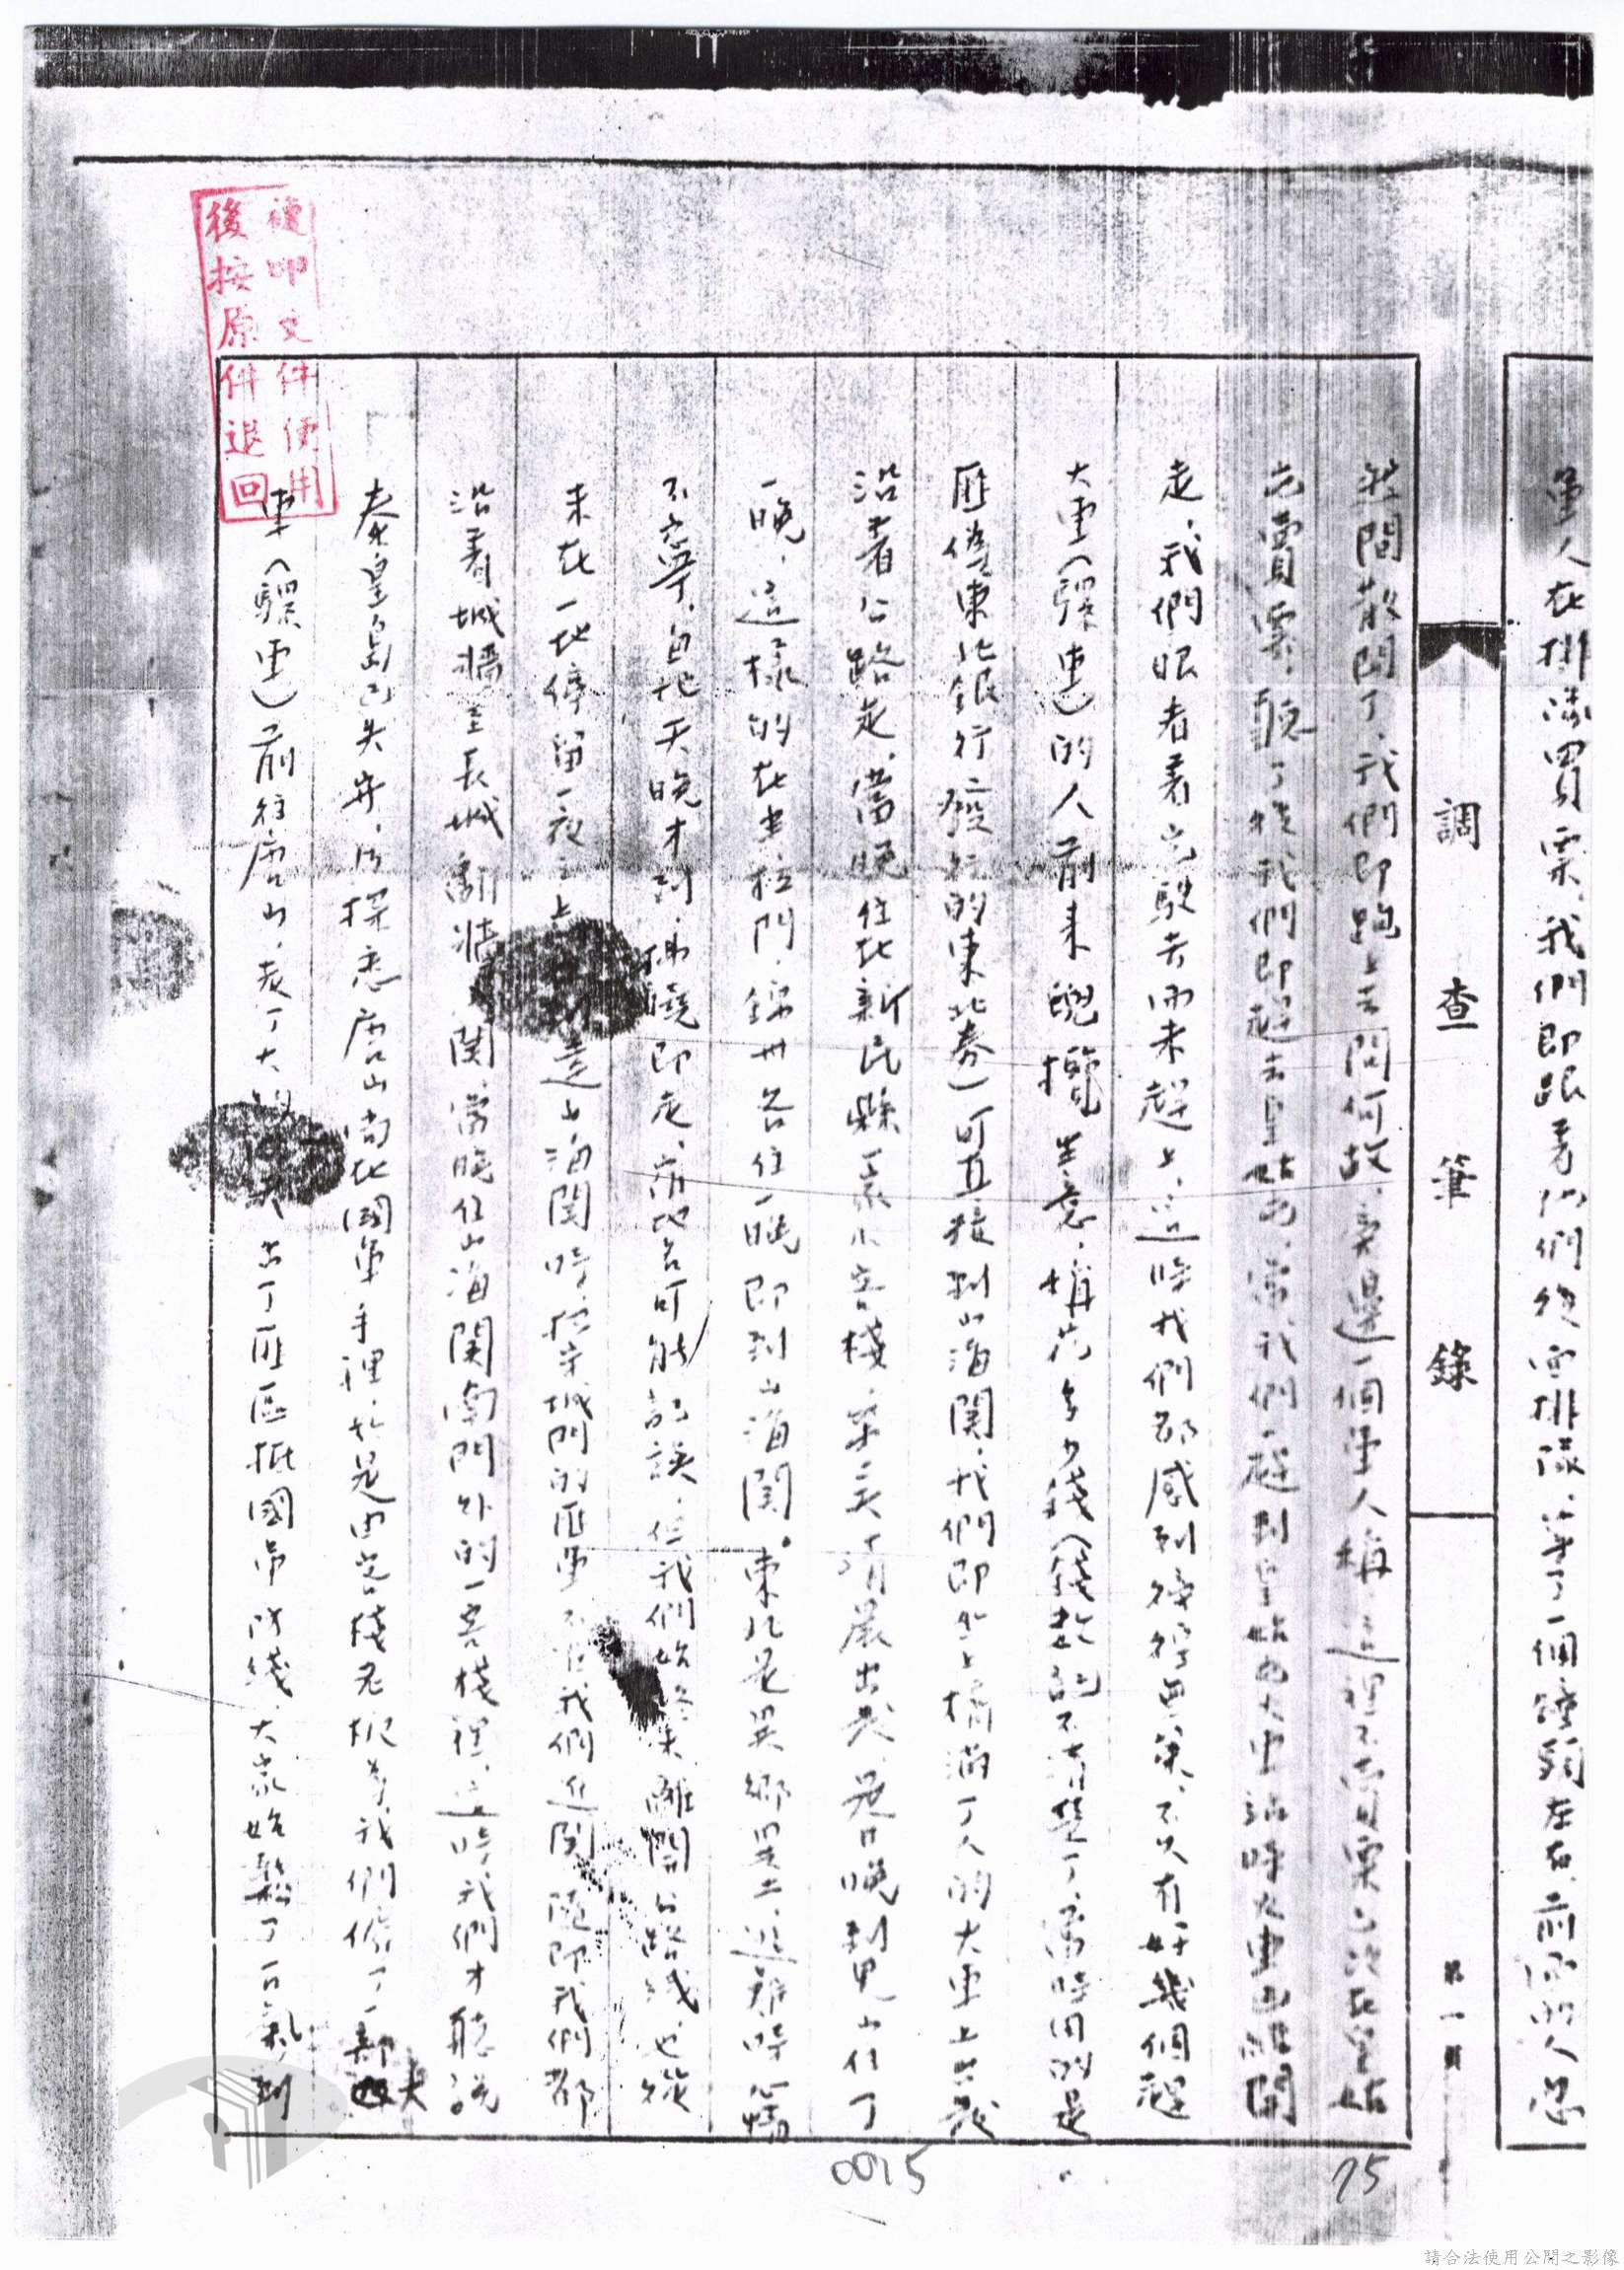 軍人在排隊買票，我們即跟着他們後面排隊，等了一個鐘頭左右，前面的人忽
調查筆錄
第一頁
然間散開了，我們即跑上去問何故，旁邊一個軍人稱，這裡不賣票已改在皇姑
屯賣票，聽了後我們即趕去皇姑屯，當我們趕到皇姑屯火車站時火車已經開
走，我們眼看着火駛去而未趕上，這時我們都感到殘得無策，不久有好幾個趕
大車（騾車）的人前來兜攬生意，講花多少錢（錢數記不清楚了，當時用的是
匪偽東北銀行發行的東北券）可直接到山海關，我們即坐上擠滿了人的大車上出發
沿着公路走，當晚住在新民縣一家小客棧，第二天清晨出發，是日晚到黑山住了
一晚，這樣的在 拉門，錦州各住一晚即到山海關。東北是異鄉異土，逃難時
不寧，每地天晚才到，拂曉即走，前地名可能記誤，但我們始終未離開公路線，也從
未在一地停留一夜之上 到達山海關時，把守城門的匪軍不准我們進關，隨即我們都
沿着城牆至長城翻牆 關，當晚住山海關南門外的一客棧裡，這時我們才聽說
秦皇島已失守，後探悉唐山尚在國軍手裡，於是由客棧老板為我們僱了一部大
車（騾車）前往唐山，走了大 天 出了匪區抵國軍防綫，大家始鬆了一口氣，到
複印文件使用
後按原件退回
0075
75
請合法使用公開之影像